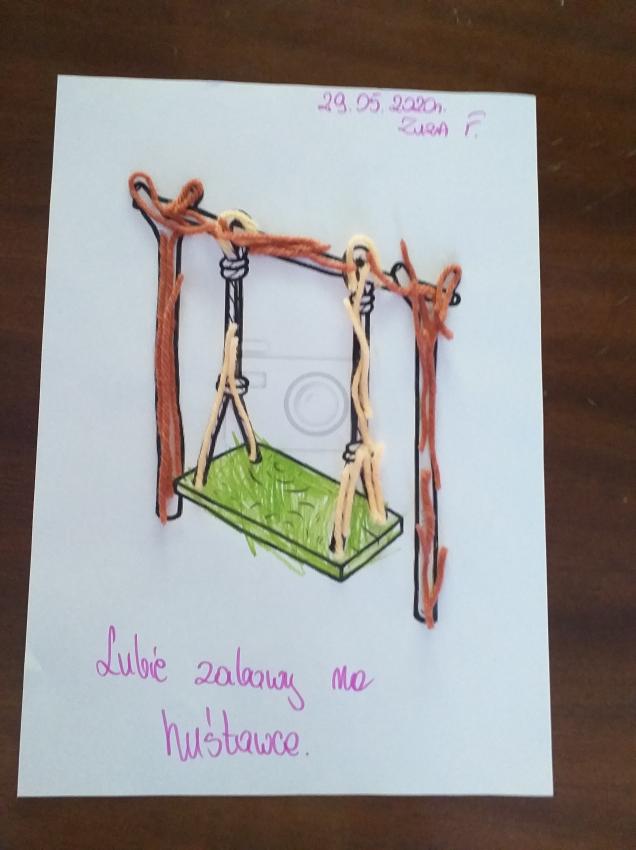 29.05.2020r.
ZUZA F.
Lubię zabawy na
huśtawce.